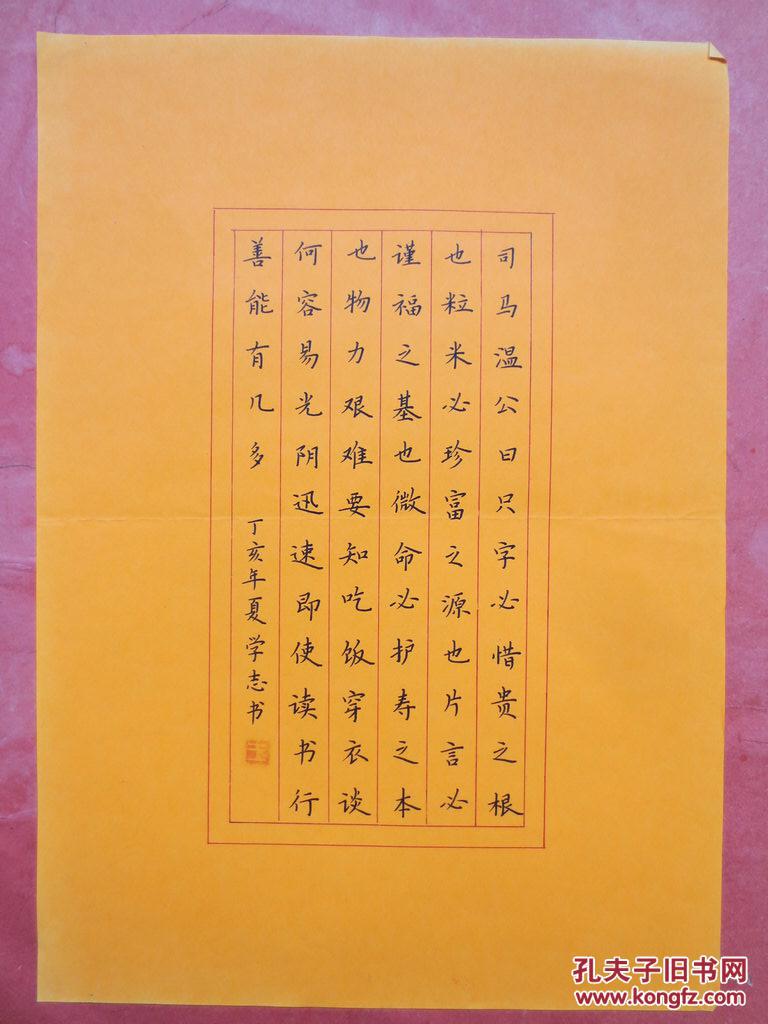 司马温公曰只字必惜贵之根
也粒米必珍富之源也片言必
谨福之基也微命必护寿之本
也物力艰难要知吃饭穿衣谈
何容易光阴迅速即使读书行
善能有几多 丁亥年夏学志书
孔夫子旧书网
www.kongfz.com